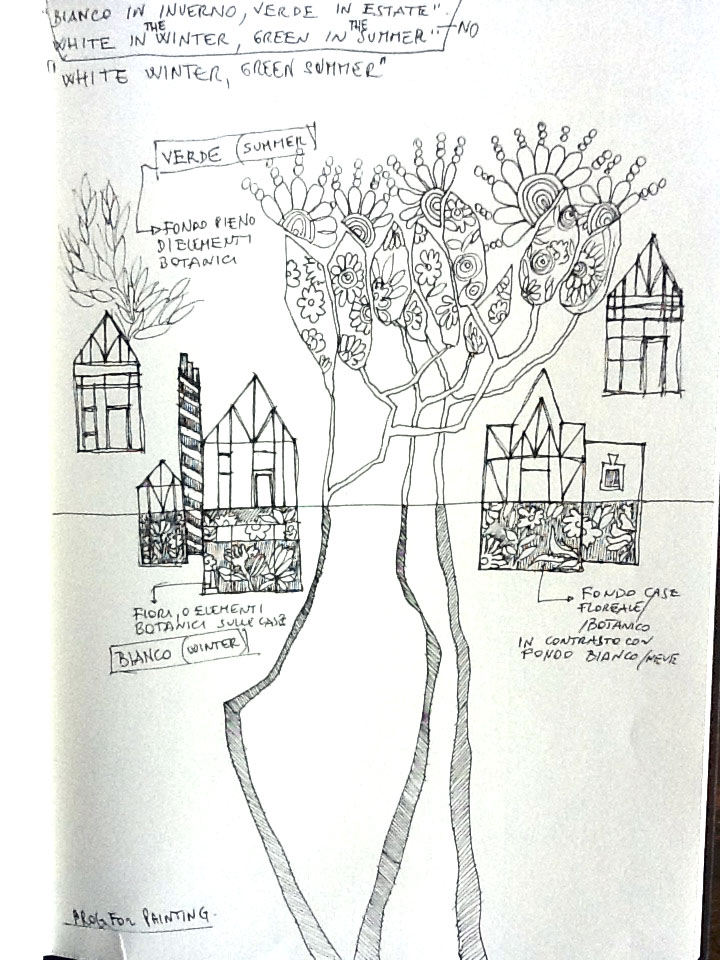 "BIANCO IN INVERNO, VERDE IN ESTATE".
WHITE IN THE WINTER, GREEN IN THE SUMMER". NO
"WHITE WINTER, GREEN SUMMER"
VERDE (SUMMER)
FONDO PIENO
DI ELEMENTI
BOTANICI
FIORI, O ELEMENTI
BOTANICI SULLE CASE
BIANCO (WINTER)
FONDO CASE
FLOREALE/
/BOTANICO
IN CONTRASTO CON
FONDO BIANCO/NEVE
FOR PAINTING.